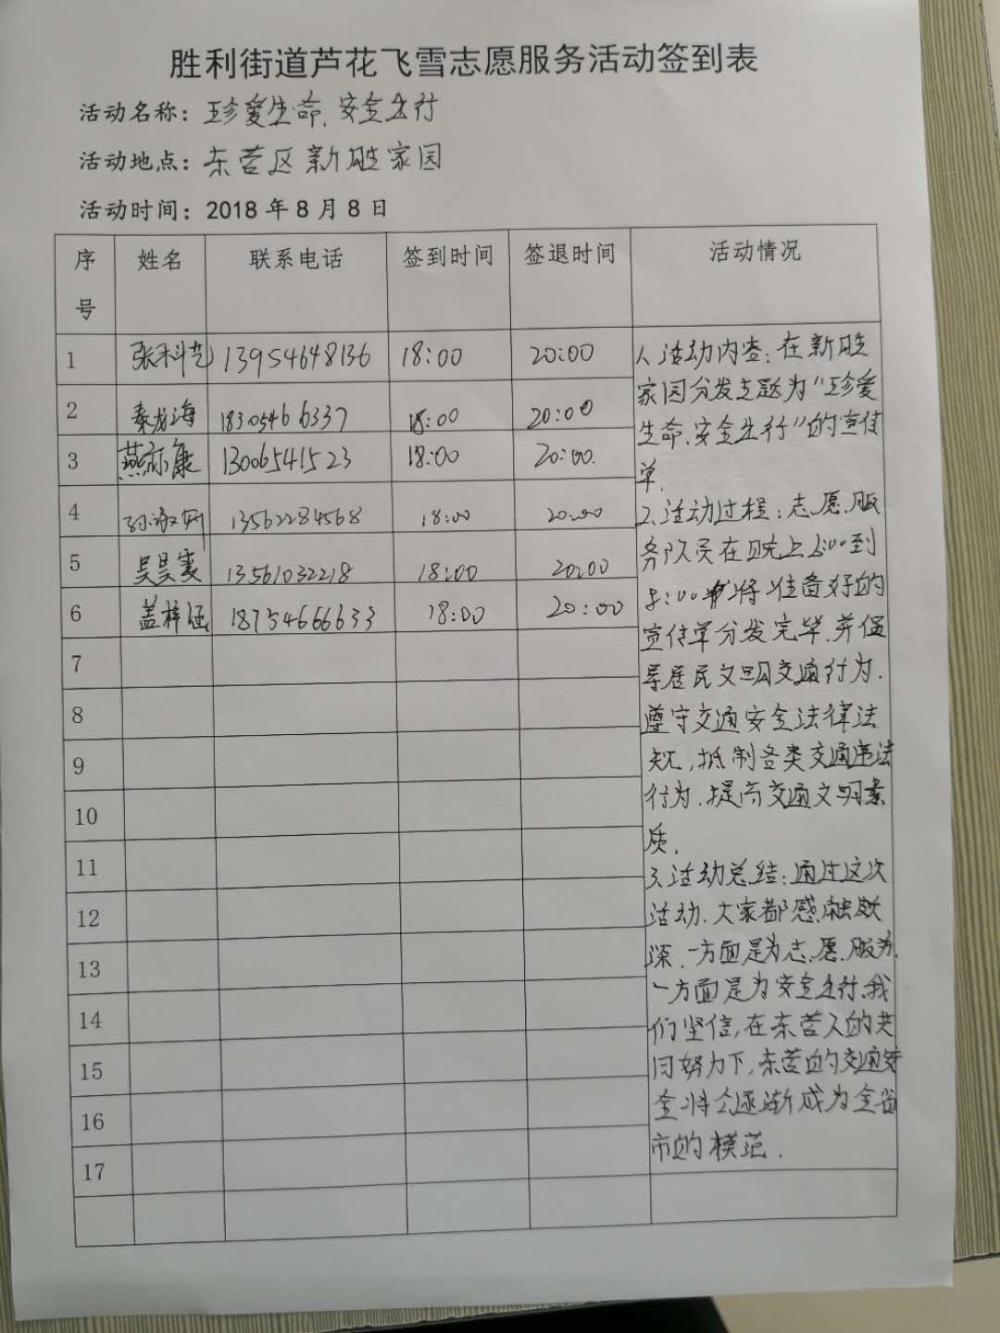 胜利街道芦花飞雪志愿服务活动签到表
活动名称：珍爱生命、安全出行
活动地点：东营区新胜家园
活动时间：2018年8月8日
序号 姓名 联系电话 签到时间 签退时间 活动情况
1 张科艺 13954648136 18:00 20:00
2 秦龙海 18305466337 18:00 20:00
3 燕亦康 13006541523 18:00 20:00.
4 13562284568 18:00 20:00
5 吴昊雯 13561032218 18:00 20:00
6 盖梓涵 18754666633 18:00 20:00
7
8
9
10
11
12
13
14
15
16
17
1、活动内容：在新胜
家园分发主题为“珍爱
生命、安全出行”的宣传
单.
2、活动过程：志愿服
务队员在晚上 到
8:00 将准备好的
宣传单分发完毕.并倡
导居民文明交通行为.
遵守交通安全法律法
规,抵制各类交通违法
行为.提高交通文明素
质.
3、活动总结：通过这次
活动.大家都感触颇
深.一方面是为志愿服务.
一方面是为安全出行.我
们坚信,在东营人的共
同努力下,东营的交通安
全将会逐渐成为全省
市的模范.